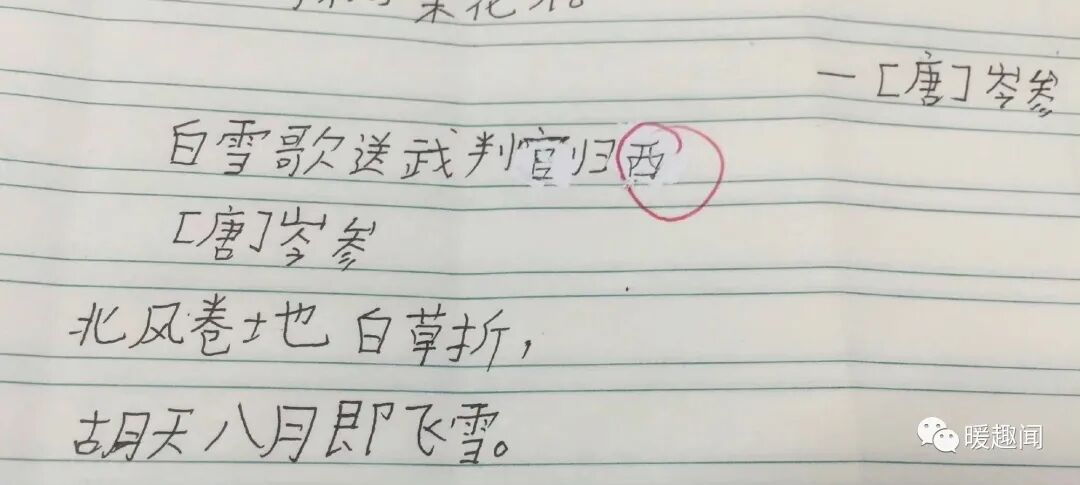 一[唐]岑参
白雪歌送武判官归西
[唐]岑参
北风卷地白草折，
胡天八月即飞雪。
暖趣闻